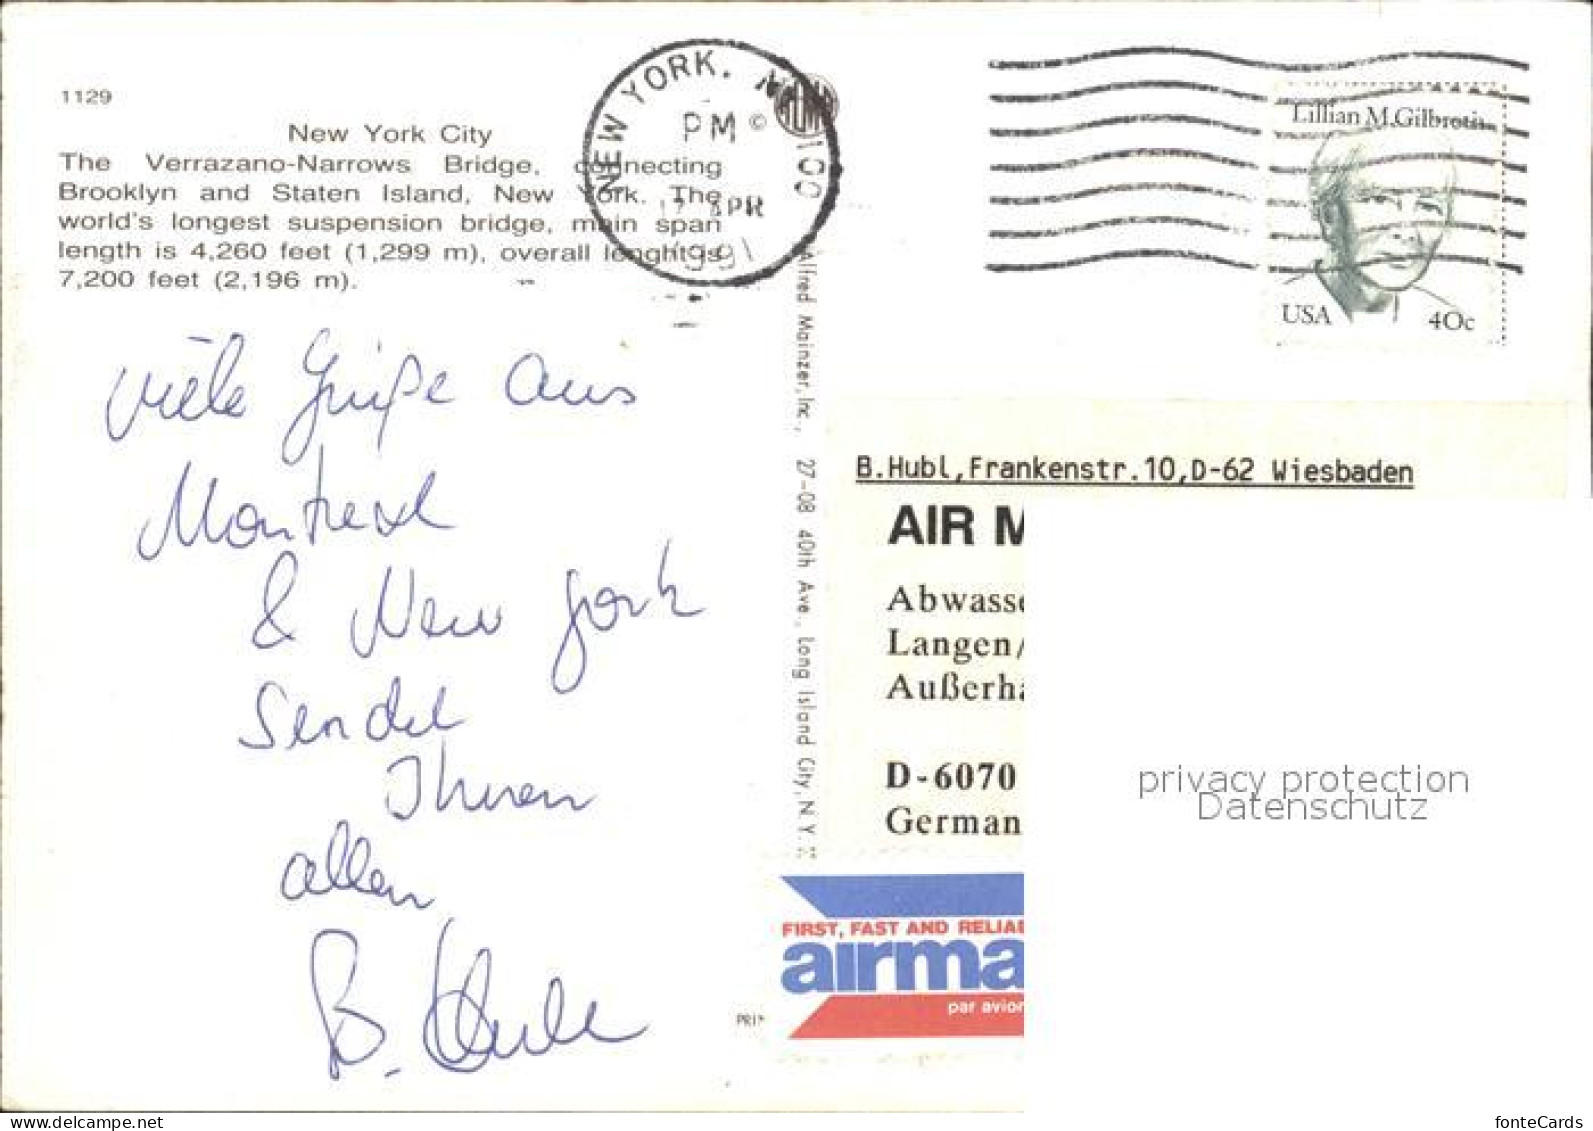 1129
New York City
The Verrazano-Narrows Bridge, connecting
Brooklyn and Staten Island, New York. The
world's longest suspension bridge, main span
length is 4,260 feet (1,299 m), overall lenght is
7,200 feet (2,196 m).
NEW YORK, N.Y. 100
PM
17 APR
1991
©
Lillian M. Gilbreth
USA 40c
Viele Grüße aus
Montreal
& New York
Sendet
Ihnen
allen
B. Hubl
Alfred Mainzer, Inc., 27-08 40th Ave., Long Island City, N.Y.
B.Hubl,Frankenstr.10,D-62 Wiesbaden
AIR M
Abwasse
Langen/
Außerha
D-6070
German
FIRST, FAST AND RELIAB
airma
par avion
PRIN
privacy protection
Datenschutz
www.delcampe.net
fonteCards